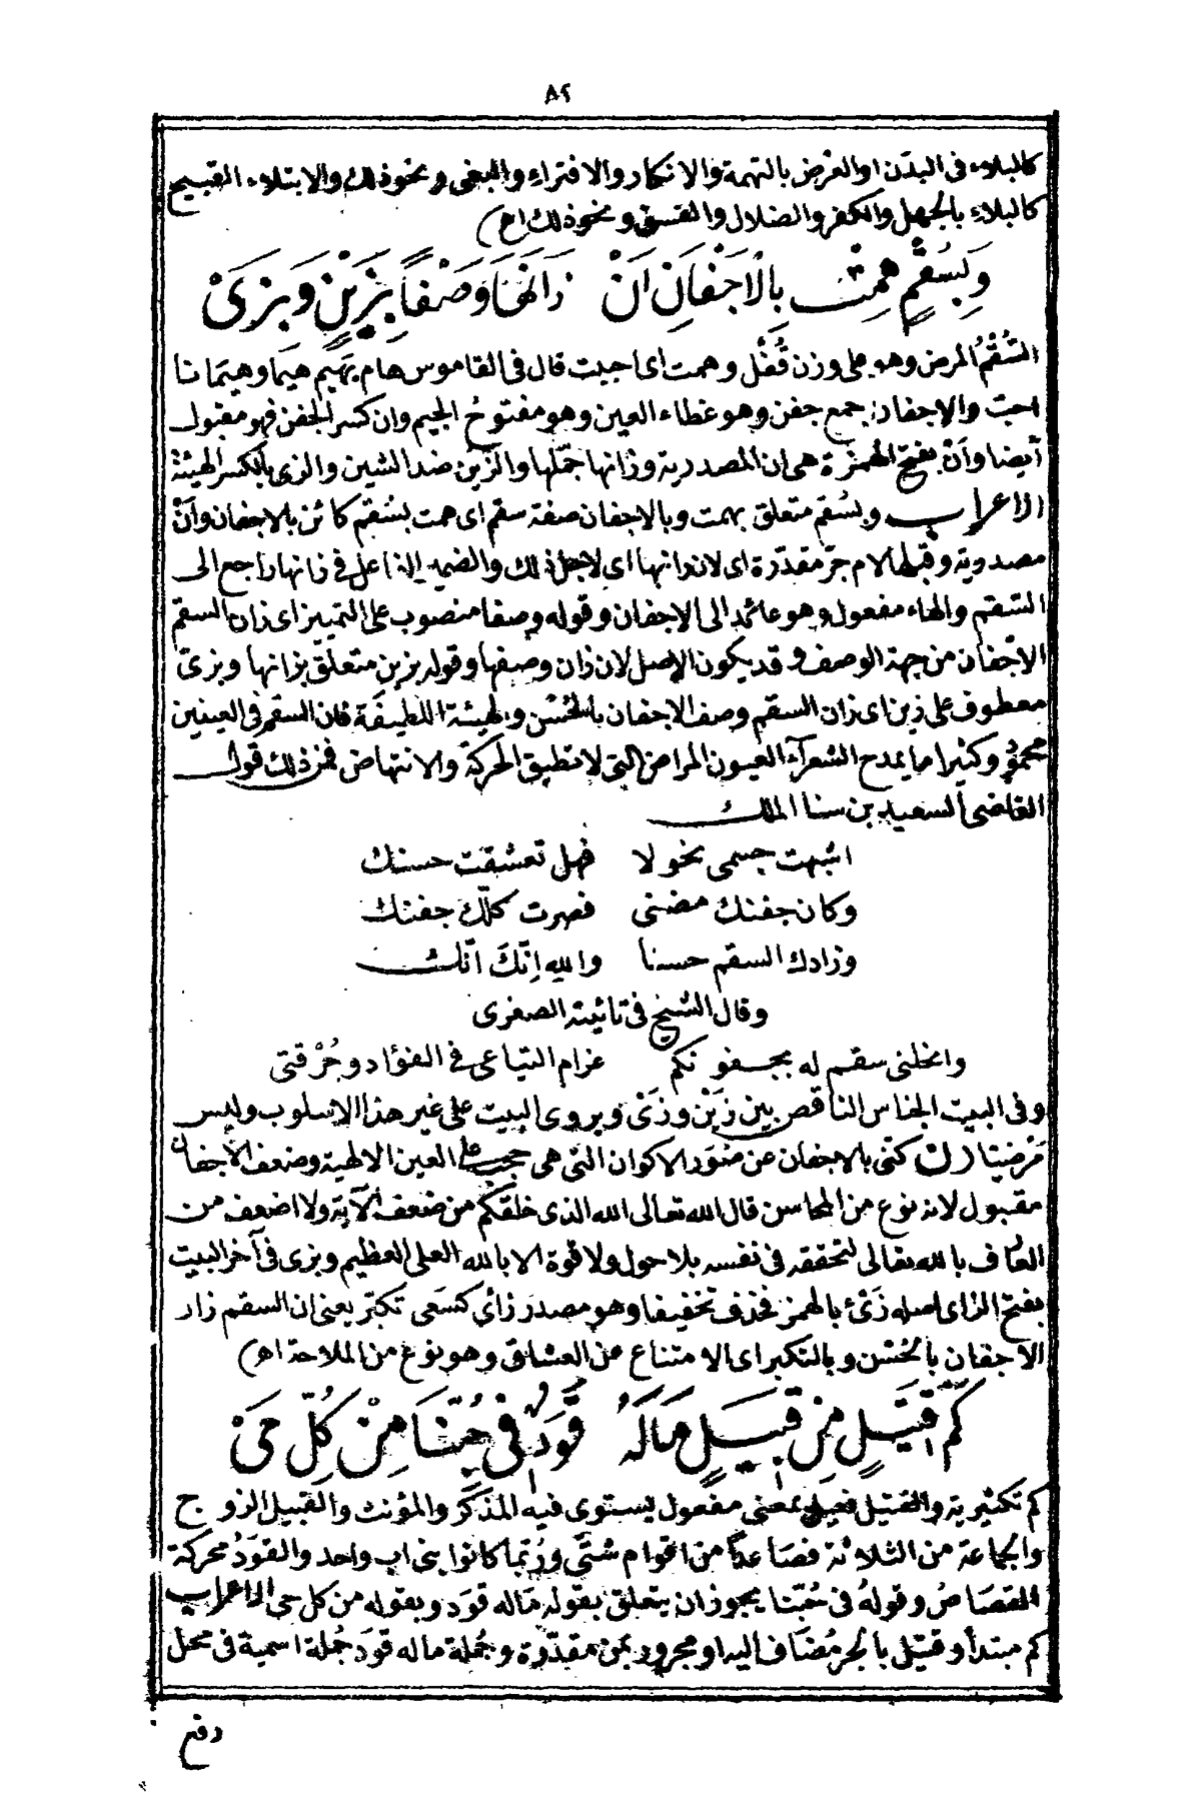 ٨٢
كالبلاء فى البدن او العرض بالتهمة والانكار والافتراء والبغى ونحو ذلك والابتلاء القبيح
كالبلاء بالجهل والكفر والضلال والفسق ونحو ذلك اه)
وَبِسُقْمٍ هِمْتُ بِالْاَجْفَانِ اَنْ زَانَهَا وَصْفاً بِزَيْنٍ وَبِزَىْ
السُّقْمُ المرض وهو على وزن قُفْل وهمت اى احببت قال فى القاموس هام يَهيم هَيما وهيَمانا
احبّ والاجفان جمع جفن وهو غطاء العين وهو مفتوح الجيم وان كسر الجفن فهو مقبول
أيضا وأَنْ بفتح الهمزة هى ان المصدرية وزانها جمّلها والزَّين ضد الشين والزى بالكسر الهيئة
الاعراب وبسُقم متعلق بهمت وبالاجفان صفة سقم اى همت بسُقم كائن بالاجفان وأَنْ
مصدرية وقبلها لام جرّ مقدّرة اى لان زانها اى لاجل ذلك والضمير الفاعل فى زانها راجع الى
السّقم والهاء مفعول وهو عائد الى الاجفان وقوله وصفا منصوب على التمييز اى زان السقم
الاجفان من جهة الوصف وقد يكون الاصل لان زان وصفها وقوله بزين متعلّق بزانها وبزى
معطوف على زين اى زان السقم وصف الاجفان بالحُسْن والهيئة اللطيفة فان السقم فى العينين
محمود وكثيرا ما يمدح الشعرآء العيون المراض التى لا تطيق الحركة والانتهاض فمن ذلك قول
القاضى السعيد بن سنا الملك
اشبهت جسمى نحولا فهل تعشقت حسنك
وكان جفنك مضنى فصرت كلّك جفنك
وزادك السقم حسنا والله اِنّكَ انّك
وقال الشيخ فى تائيته الصغرى
وانحلنى سقم له بجفونكم غرام التياعى فى الفؤاد وحُرْقتى
وفى البيت الجناس الناقص بين زَيْن وزَىْ ويروى البيت على غير هذا الاسلوب وليس
مَرْضيّا (ن) كنى بالاجفان عن صُوَر الاكوان التى هى حجب على العين الالهية وضعف الاجفان
مقبول لانه نوع من المحاسن قال الله تعالى الله الذى خلقكم من ضعف الآية ولا اضعف من
العارف بالله تعالى لتحققه فى نفسه بلا حول ولا قوة الا بالله العلى العظيم وبزى فى آخر البيت
بفتح الزاى اصله زَىْءٌ بالهمز فحذف تخفيفا وهو مصدر زأى كسَعَى تكبّر يعنى ان السقم زان
الاجفان بالحُسْن وبالتكبر اى الامتناع عن العشاق وهو نوع من الملاحة اه)
كَمْ قَتِيلٍ مِنْ قَبِيلٍ مَالَهُ قَوَدٌ فِى حُبِّنَا مِنْ كُلِّ حَىْ
كم تكثيرية والقتيل فعيل بمعنى مفعول يستوى فيه المذكّر والمؤنث والقبيل الزوج
والجماعة من الثلاثة فصَاعداً من اقوام شتّى ورُبّما كانوا بنى اب واحد والقوَدُ محركة
القصَاصُ وقولهُ فى حُبّنا يجوز ان يتعلق بقوله مَاله قوَد وبقوله من كل حى الاعراب
كم مبتدأ وقتيل بالجر مُضَاف اليه او مجرور بمن مقدّرة وجُملة ماله قوَد جُملة اسمية فى محل
رفع